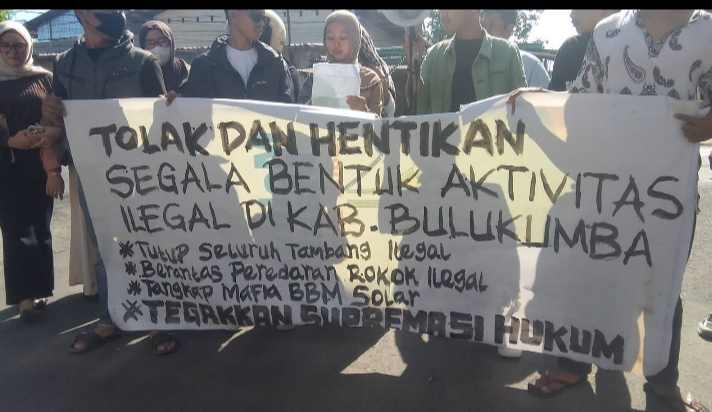 TOLAK DAN HENTIKAN
SEGALA BENTUK AKTIVITAS
ILEGAL DI KAB. BULUKUMBA
* Tutup Seluruh Tambang Ilegal
* Berantas Peredaran Rokok Ilegal
* Tangkap Mafia BBM Solar
* TEGAKKAN SUPREMASI HUKUM